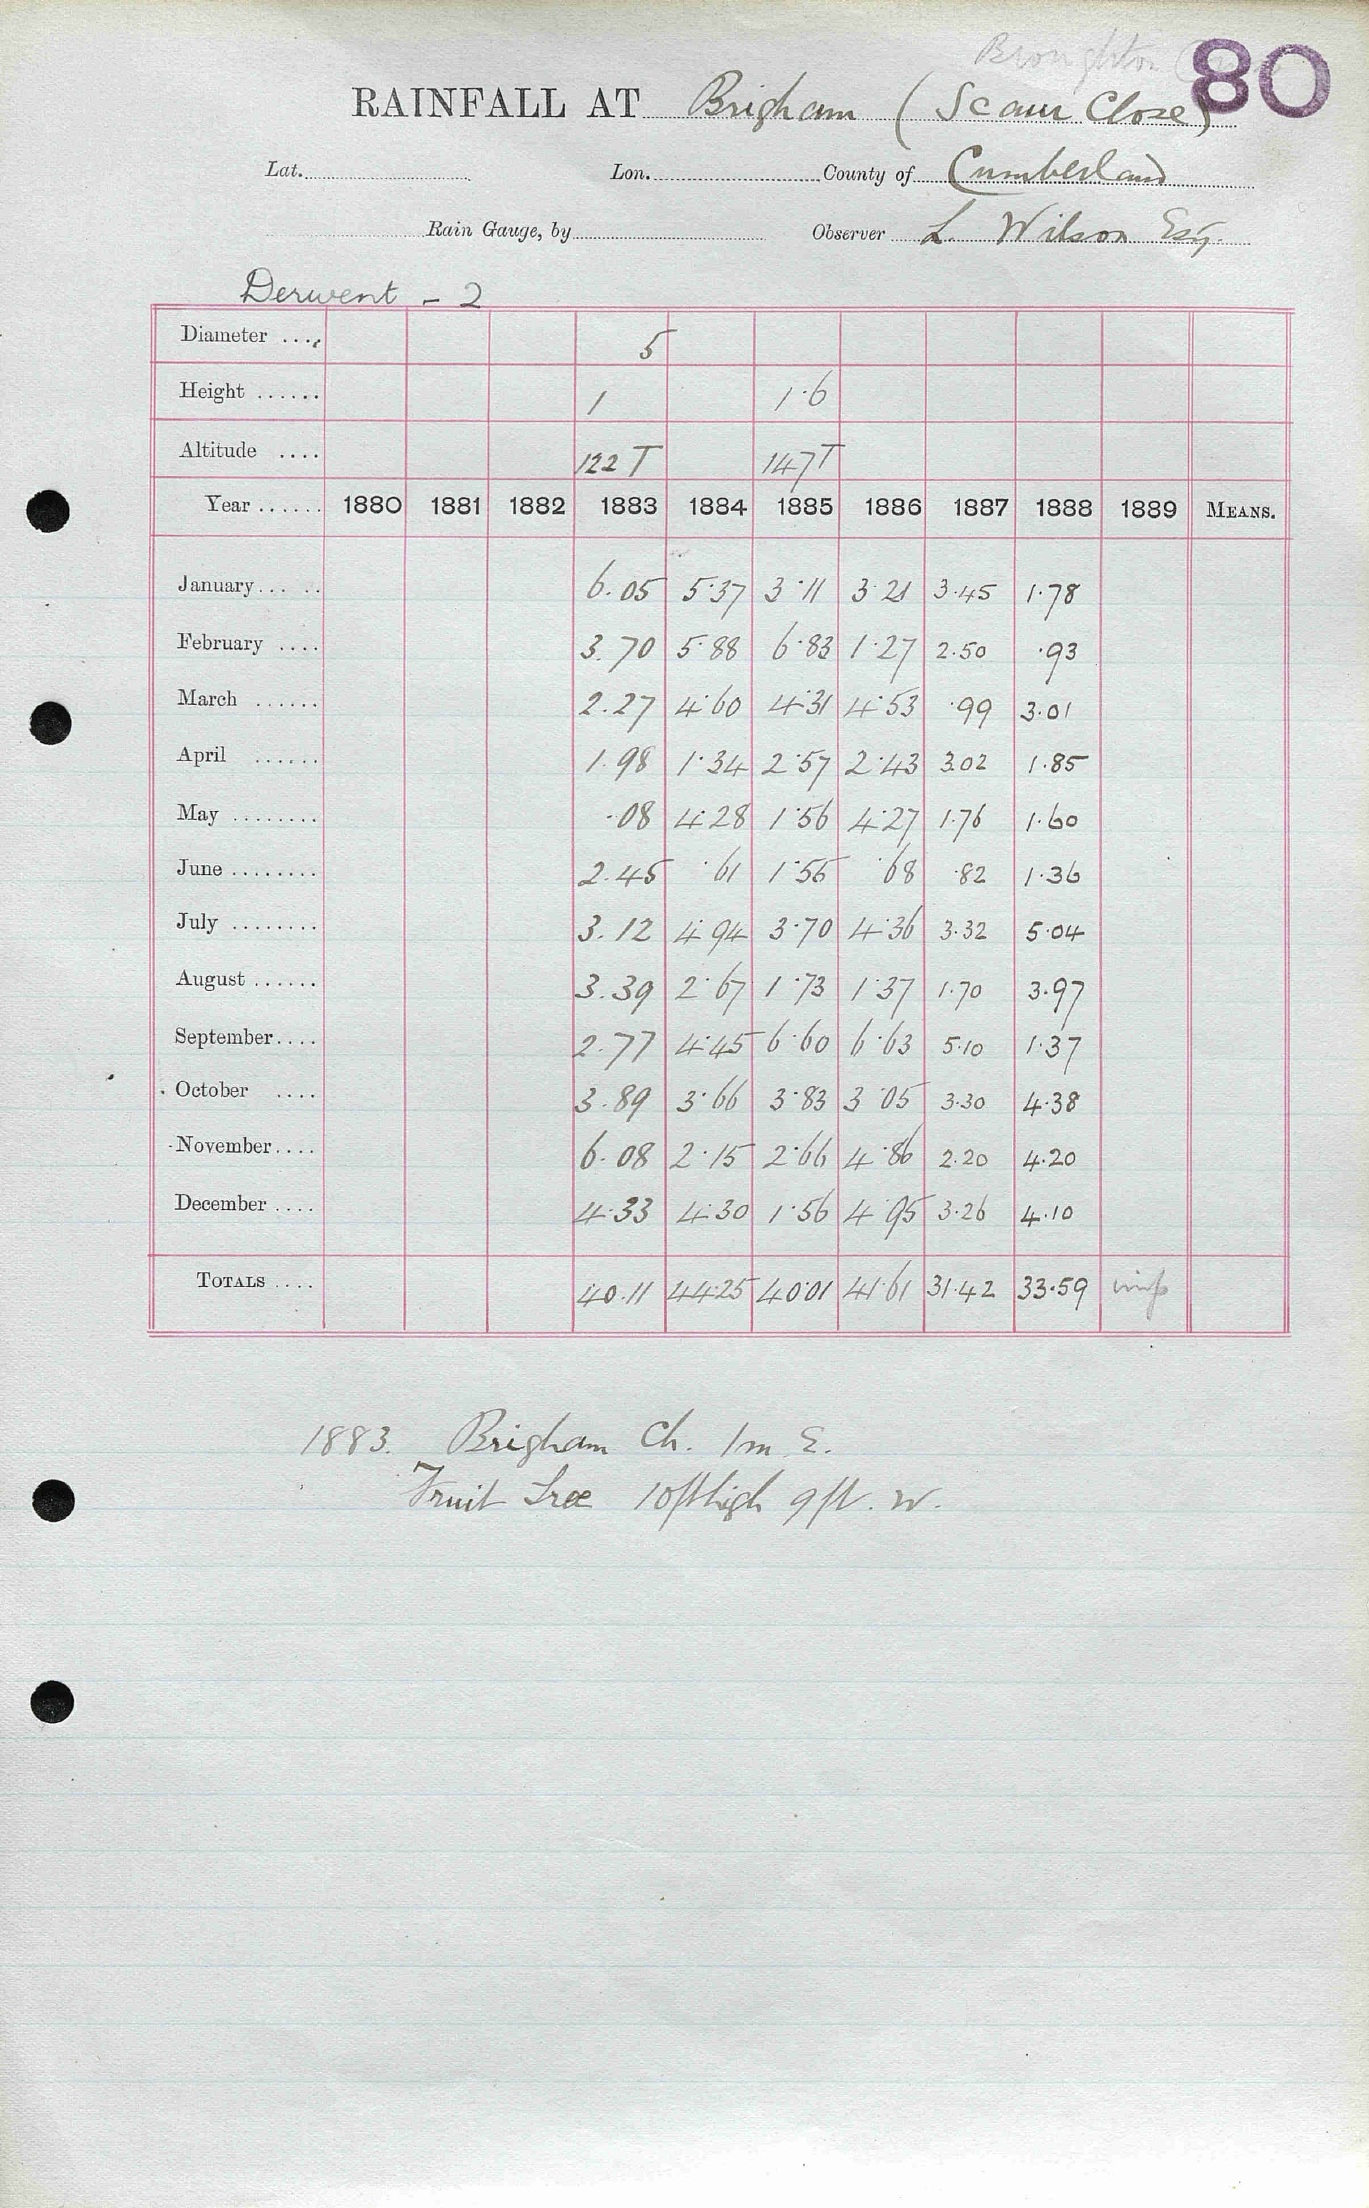 Broughton
80
RAINFALL AT Brigham (Scaur Close)
Lat. Lon. County of Cumberland
Rain Gauge, by Observer L. Wilson Esq.
Derwent - 2
Diameter .... 5
Height ...... 1 1.6
Altitude .... 122 T 147 T
Year ...... 1880 1881 1882 1883 1884 1885 1886 1887 1888 1889 MEANS.
January.... 6.05 5.37 3.11 3.21 3.45 1.78
February .... 3.70 5.88 6.83 1.27 2.50 .93
March ...... 2.27 4.60 4.31 4.53 .99 3.01
April ...... 1.98 1.34 2.57 2.43 3.02 1.85
May ........ .08 4.28 1.56 4.27 1.76 1.60
June ........ 2.45 .61 1.55 .68 .82 1.36
July ........ 3.12 4.94 3.70 4.36 3.32 5.04
August ...... 3.39 2.67 1.73 1.37 1.70 3.97
September.... 2.77 4.45 6.60 6.63 5.10 1.37
October .... 3.89 3.66 3.83 3.05 3.30 4.38
November.... 6.08 2.15 2.66 4.86 2.20 4.20
December .... 4.33 4.30 1.56 4.95 3.26 4.10
TOTALS .... 40.11 44.25 40.01 41.61 31.42 33.59 imp
1883. Brigham Ch. 1m E.
Fruit Tree 10ft high 9ft. W.